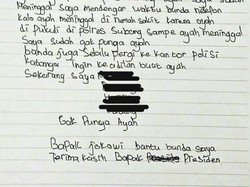 Meninggal saya mendengar waktu bunda nelefon
kalo ayah meninggal di rumah sakit karena ayah
di pukuli di polres Subang sampe ayah meninggal
Saya sudah gak punya ayah
bunda juga selalu pergi ke kantor polisi
Katanya Ingin keadilan buat ayah
Sekarang saya
Gak Punya Ayah
Bapak jokowi bantu bunda saya
Terima kasih Bapak Presiden